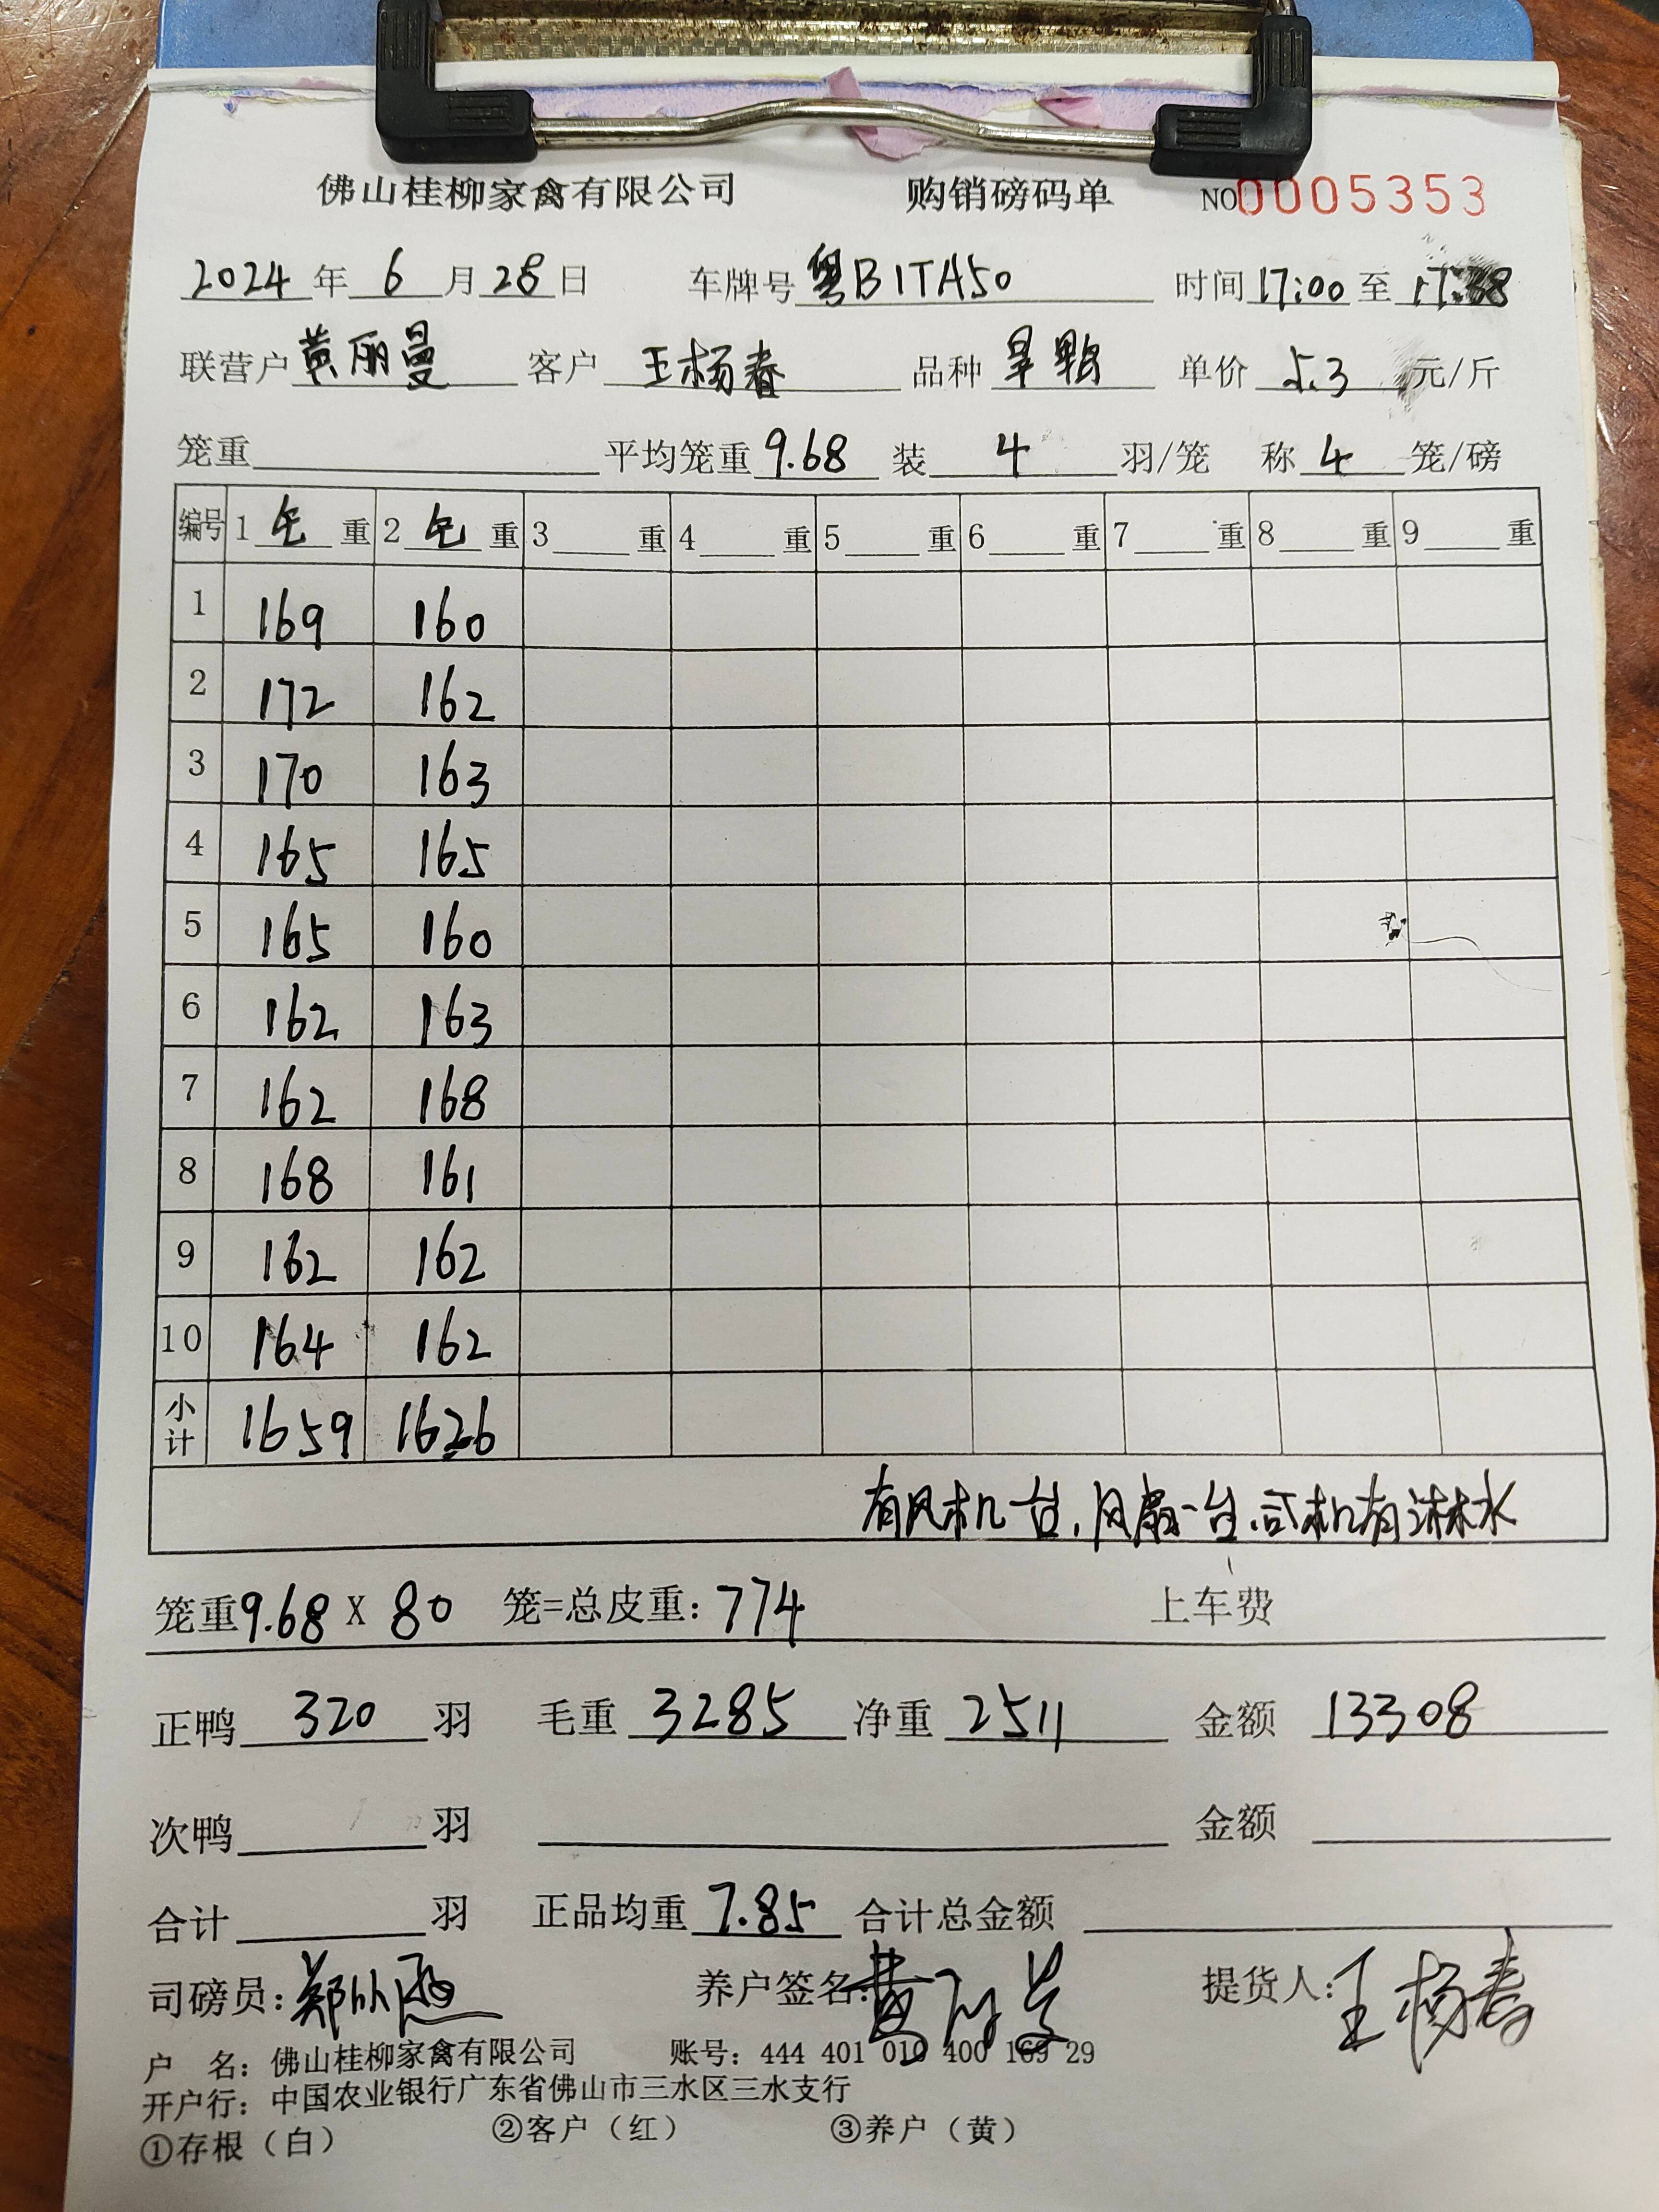 佛山桂柳家禽有限公司 购销磅码单 NO 0005353
2024 年 6 月 28 日 车牌号 粤B1TA50 时间 17:00 至 17:38
联营户 黄丽曼 客户 王杨春 品种 旱鸭 单价 5.3 元/斤
笼重 平均笼重 9.68 装 4 羽/笼 称 4 笼/磅
编号 1 毛 重 2 毛 重 3 重 4 重 5 重 6 重 7 重 8 重 9 重
1 169 160
2 172 162
3 170 163
4 165 165
5 165 160
6 162 163
7 162 168
8 168 161
9 162 162
10 164 162
小计 1659 1626
有风机一台,风扇一台,司机有淋水
笼重 9.68 X 80 笼=总皮重: 774 上车费
正鸭 320 羽 毛重 3285 净重 2511 金额 13308
次鸭 羽 金额
合计 羽 正品均重 7.85 合计总金额
司磅员: 养户签名: 黄丽曼 提货人: 王杨春
户 名: 佛山桂柳家禽有限公司 账号: 444 401 010 400 169 29
开户行: 中国农业银行广东省佛山市三水区三水支行
①存根（白） ②客户（红） ③养户（黄）